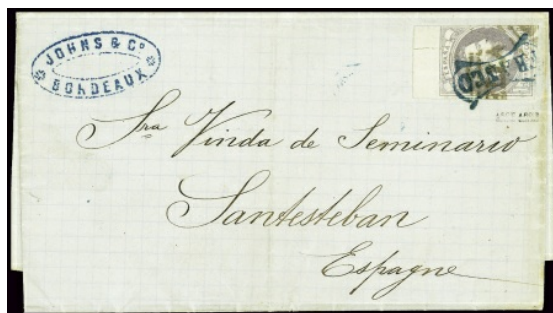 JOHNS & Co
BORDEAUX
ESPAÑA
Sra Viuda de Seminario
Santesteban
Espagne